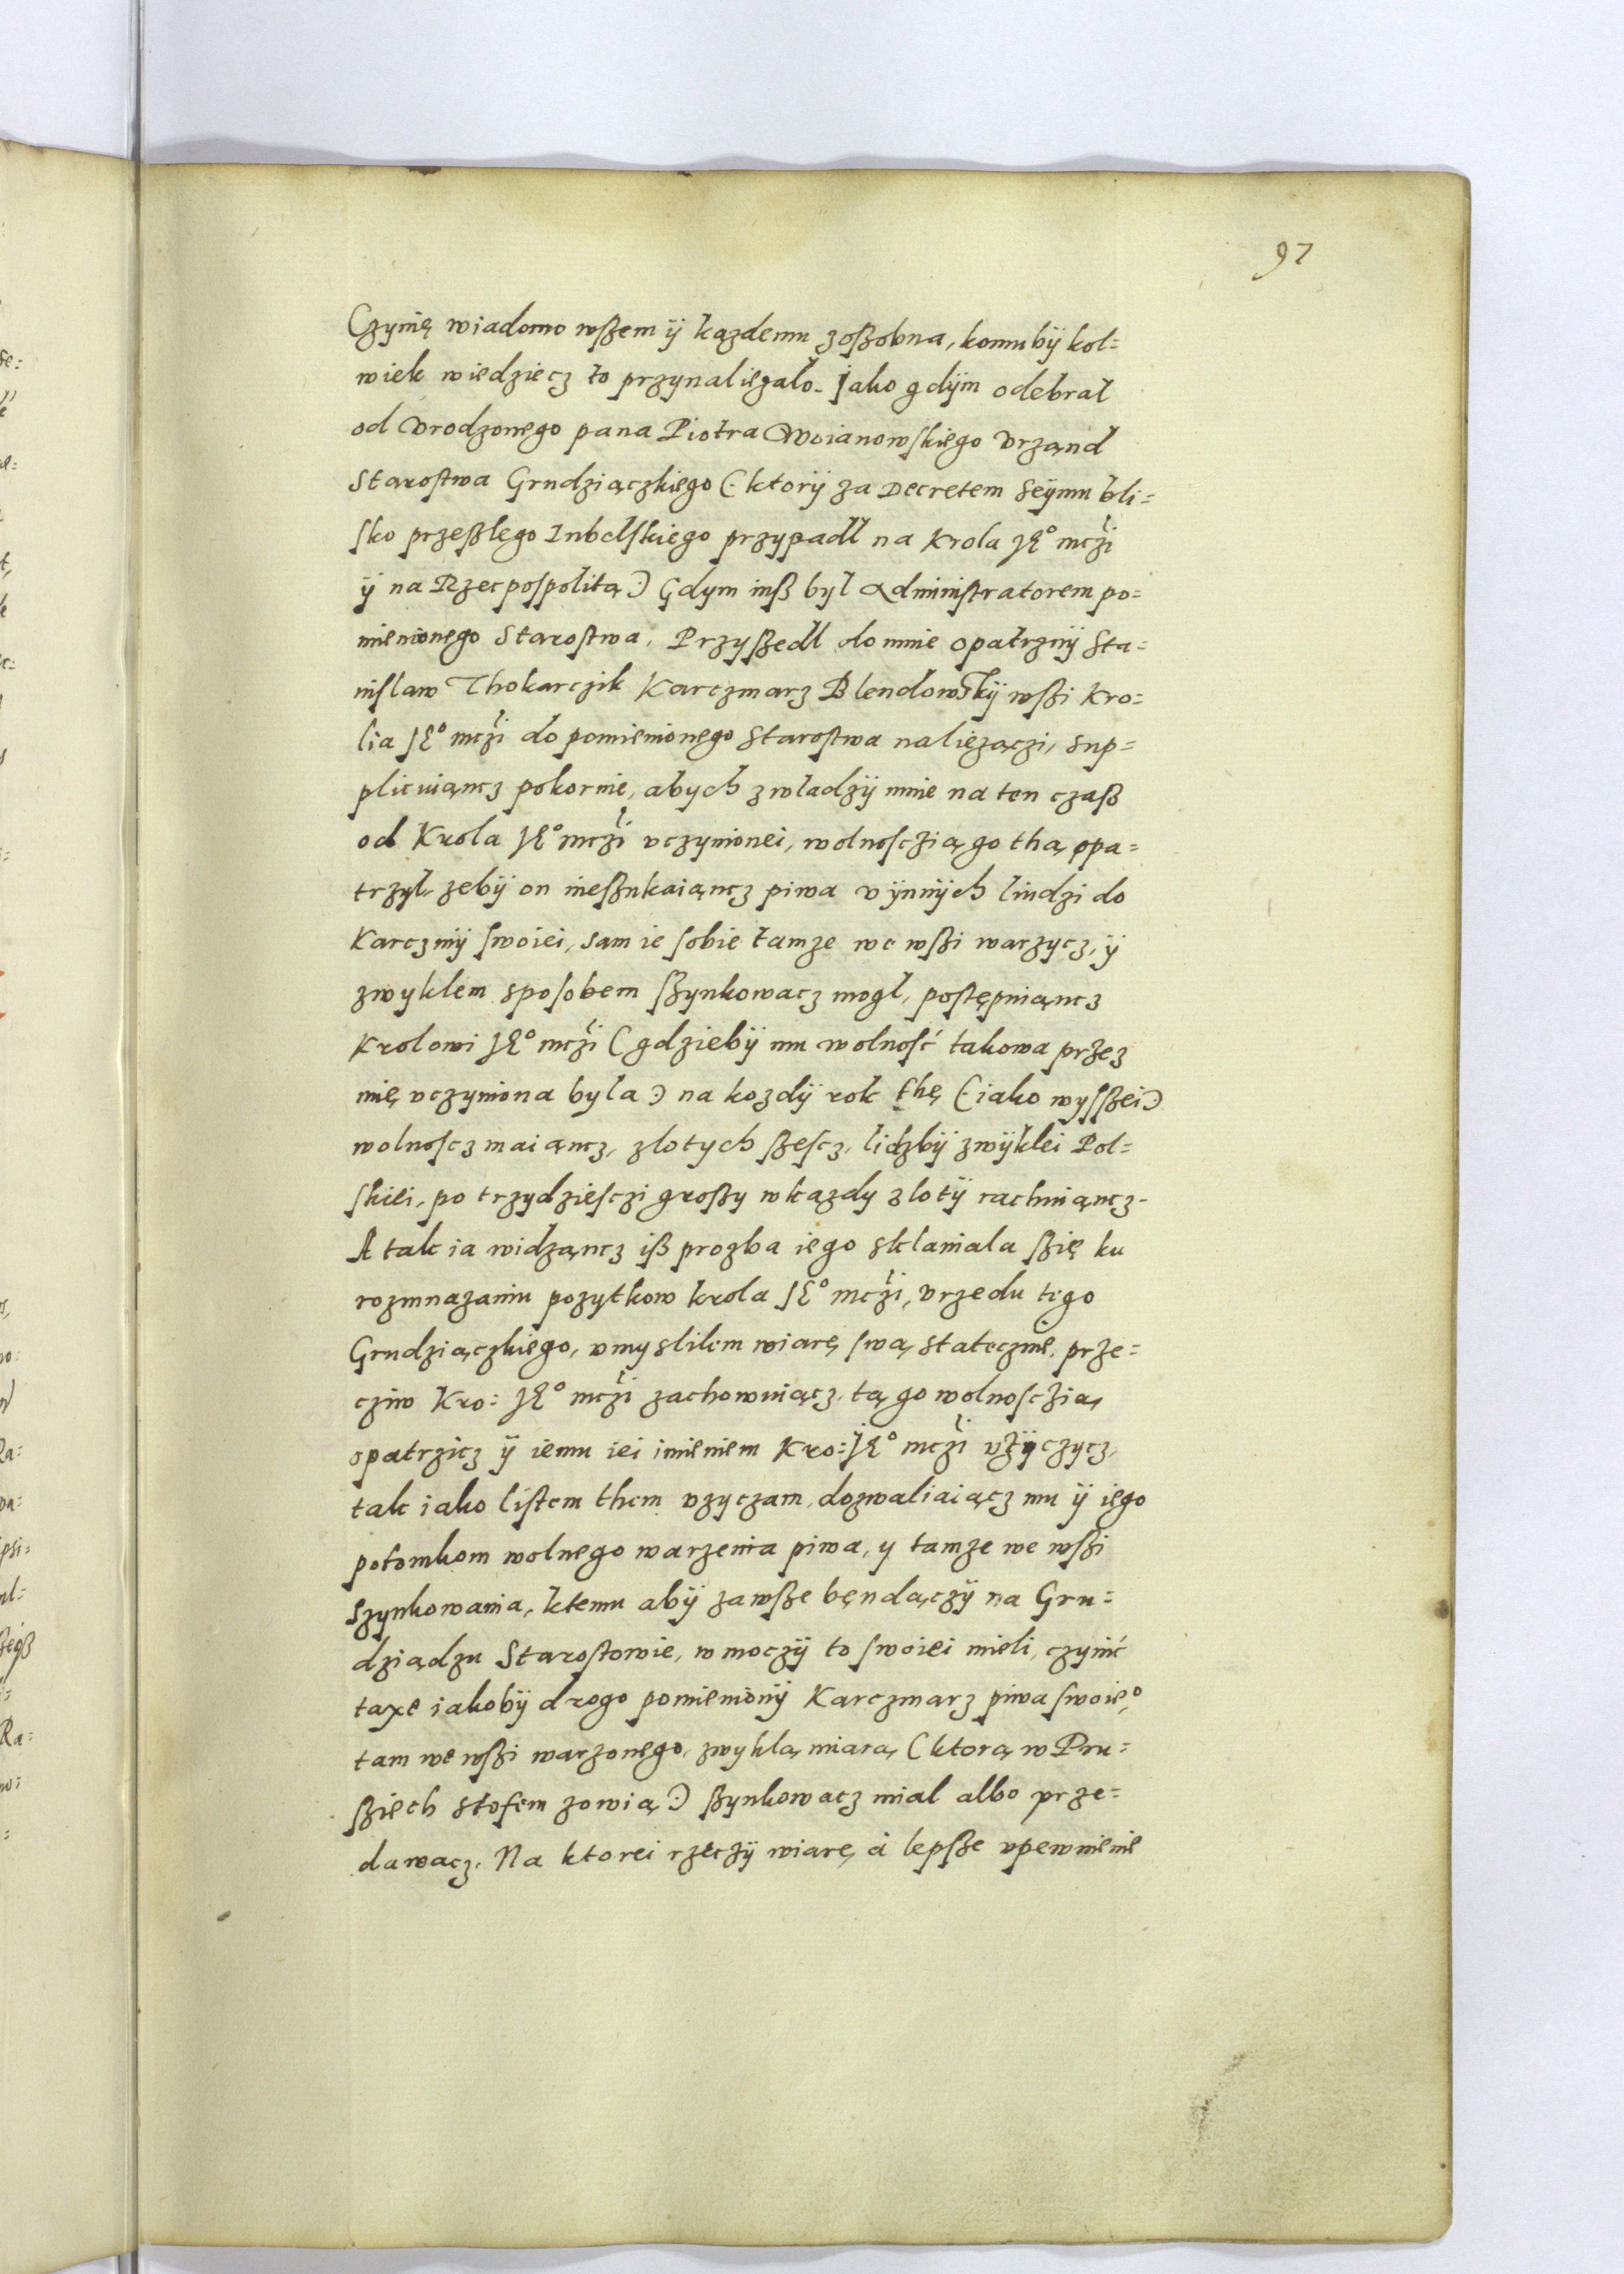 97
Czynię wiadomo wßem ÿ kazdemu zoßobna, komubÿ kol=
wiek wiedziecz to przynaliegało. Jako gdÿm odebrał
od Urodzonego pana Piotra Woianowskiego Urząnd
Starostwa Grudziączkiego (: ktorÿ za Decretem Seÿmu bli=
sko przeßlego Lubelskiego przypadl na Krola JE° mczi
ÿ na Rzecpospolitą :) Gdym inß byl Administratorem po=
mienionego Starostwa, Przyßedl do mnie opatrznÿ Sta=
nislaw Thokarczik Karczmarz Blendowskÿ wßi Kro=
lia JE° mczi do pomienionego Starostwa naliezączi, sup=
plicuiąncz pokornie, abych z władzÿ mnie na ten czaß
od Krola JE° mczi uczynionei, wolnosczią go thą opa=
trzyl, zebÿ on nießukaiąncz piwa u ÿnnÿch liudzi do
Karczmÿ swoiei, sam ie sobie tamze we wßi warzycz, ÿ
zwyklem sposobem ßynkowacz mogl, postępuiąncz
Krolowi JE° mczi (gdziebÿ mu wolność takowa przez
mię uczyniona byla :) na kozdÿ rok thę (: iako wysßei :)
wolnoscz maiąncz, zlotych ßescz, lidzbÿ zwÿklei Pol=
skiei, po trzydziesczi großy w kazdy zlotÿ rachuiąncz.
A tak ia widząncz iß prozba iego sklaniala ßię ku
rozmnazaniu pozytkow krola JE° mczi, urzedu tego
Grudziączkiego, umyslilem wiarę swą statecznie prze=
cziw Kro: JE° mczi zachowuiącz, tą go wolnosczią,
opatrzicz ÿ iemu iei imieniem Kro: JE° mczi uzÿczycz,
tak iako listem them uzyczam, dozwaliaiącz mu ÿ iego
potomkom wolnego warzenia piwa, y tamze we wßi
Szynkowania, ktemu abÿ zawße bęndączÿ na Gru=
dziądzu Starostowie, w moczÿ to swoiei mieli, czynić
taxe iakobÿ drogo pomienionÿ Karczmarz piwa swoie°
tam we wßi warzonego, zwyklą miarą (ktorą w Pru=
ßiech stofem zowią :) ßynkowacz mial albo prze=
dawacz. Na ktorei rzeczÿ wiarę, á lepße upewnienie